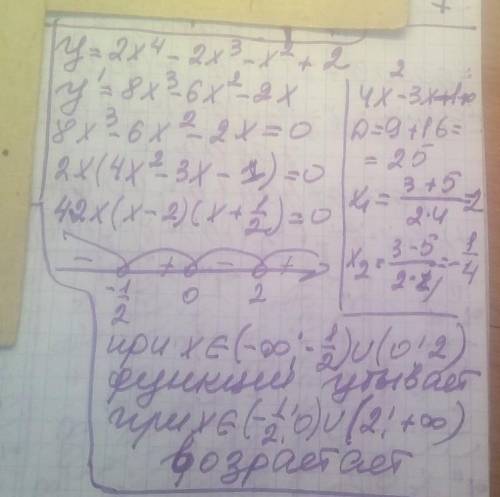 y = 2x⁴ - 2x³ - x² + 2
y' = 8x³ - 6x² - 2x
8x³ - 6x² - 2x = 0
2x(4x² - 3x - 1) = 0
42x(x - 2)(x + 1/2) = 0
- + - +
-1/2 0 2
4x² - 3x + 1 =
D = 9 + 16 =
= 25
x₁ = (3 + 5)/(2·4) = 2
x₂ = (3 - 5)/(2·4) = -1/4
при x ∈ (-∞; -1/2) ∪ (0; 2)
функций убывает
при x ∈ (-1/2; 0) ∪ (2; +∞)
возрастает